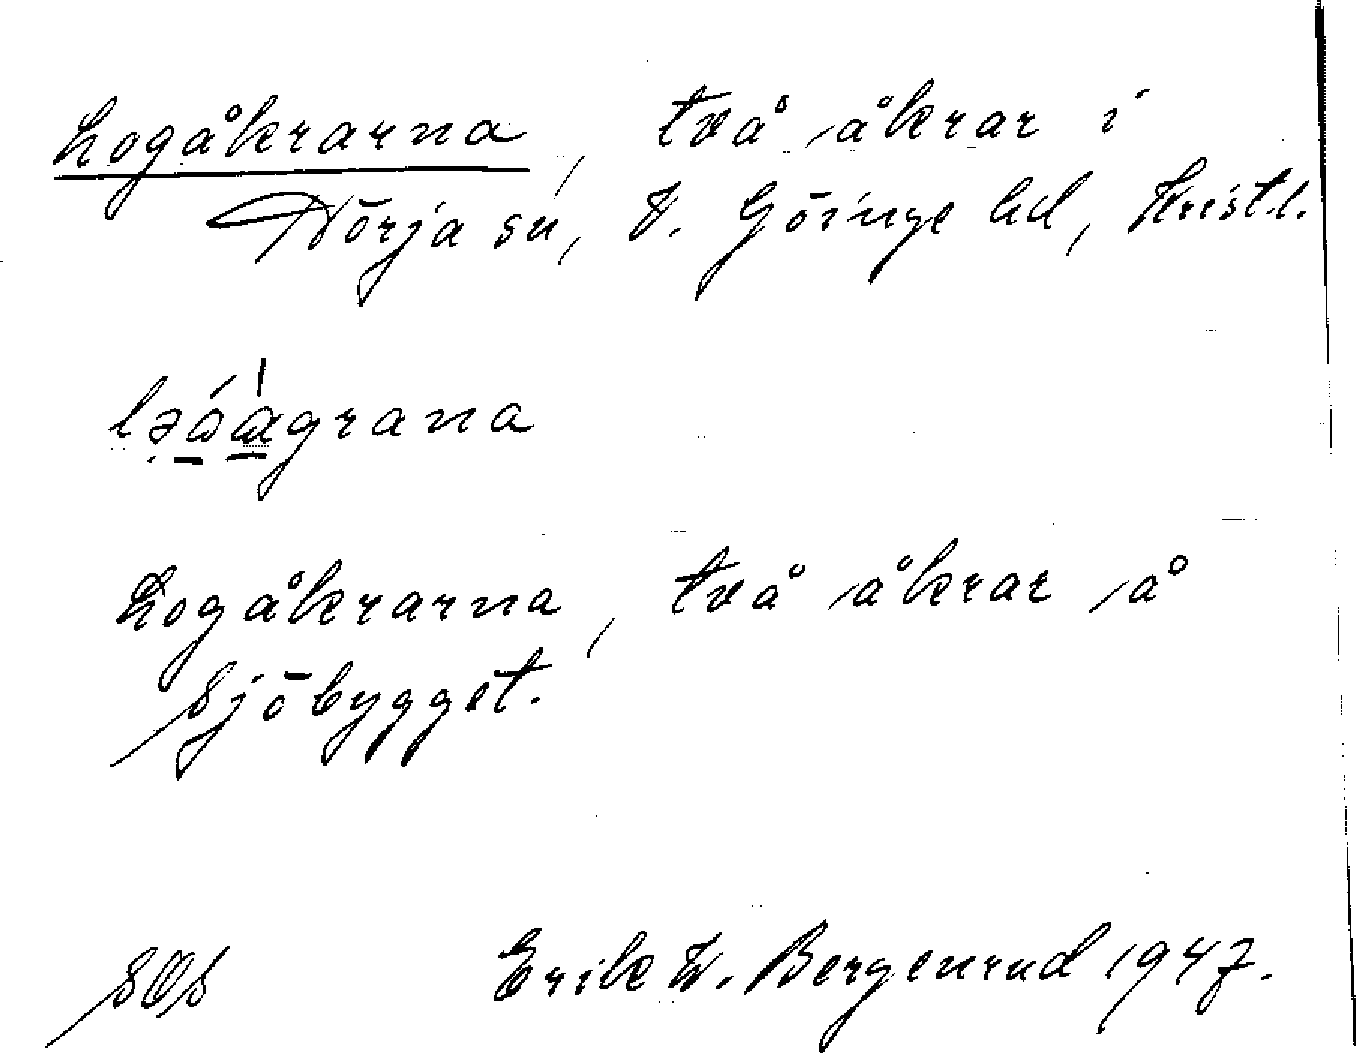 Logåkrarna, två åkrar i
Nörja sn, V. Göinge hd, Kristl.
Logåkrarna, två åkrar å
Sjöbygget.
Erik W. Bergenrud 1947.